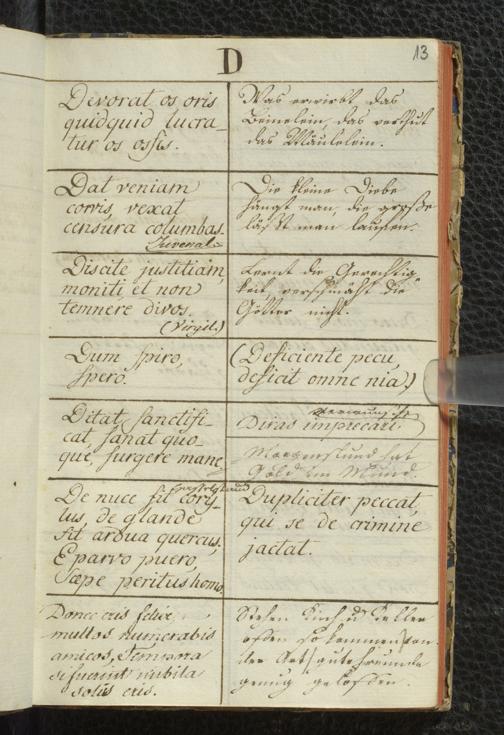 13
D
Devorat os oris
quidquid lucra-
tur os ossis.
Was erwirbt das
Beinelein, das verthut
das Mäulelein.
Dat veniam
corvis, vexat
censura columbas.
Juvenal.
Die kleine Diebe
hängt man, die große
läßt man laufen.
Discite justitiam,
moniti et non
temnere divos.
(Virgil.)
Lernt die Gerechtig
keit, verschmäht die
Götter nicht.
Dum spiro,
spero.
(Deficiente pecu,
deficit omne nia.)
Ditat, sanctifi-
cat, sanat quo-
que, surgere mane.
Diras imprecari.
Morgenstund hat
Gold im Mund.
De nuce fit cory-
lus, de glande
fit ardua quercus.
E parvo puero,
sæpe peritus homo.
Dupliciter peccat,
qui se de crimine
jactat.
Donec eris felix
multos numerabis
amicos, Tempora
si fuerint nubila
solus eris.
Stehen Küch u Keller
offen so kommen von
der Art gute Freunde
genug geloffen.